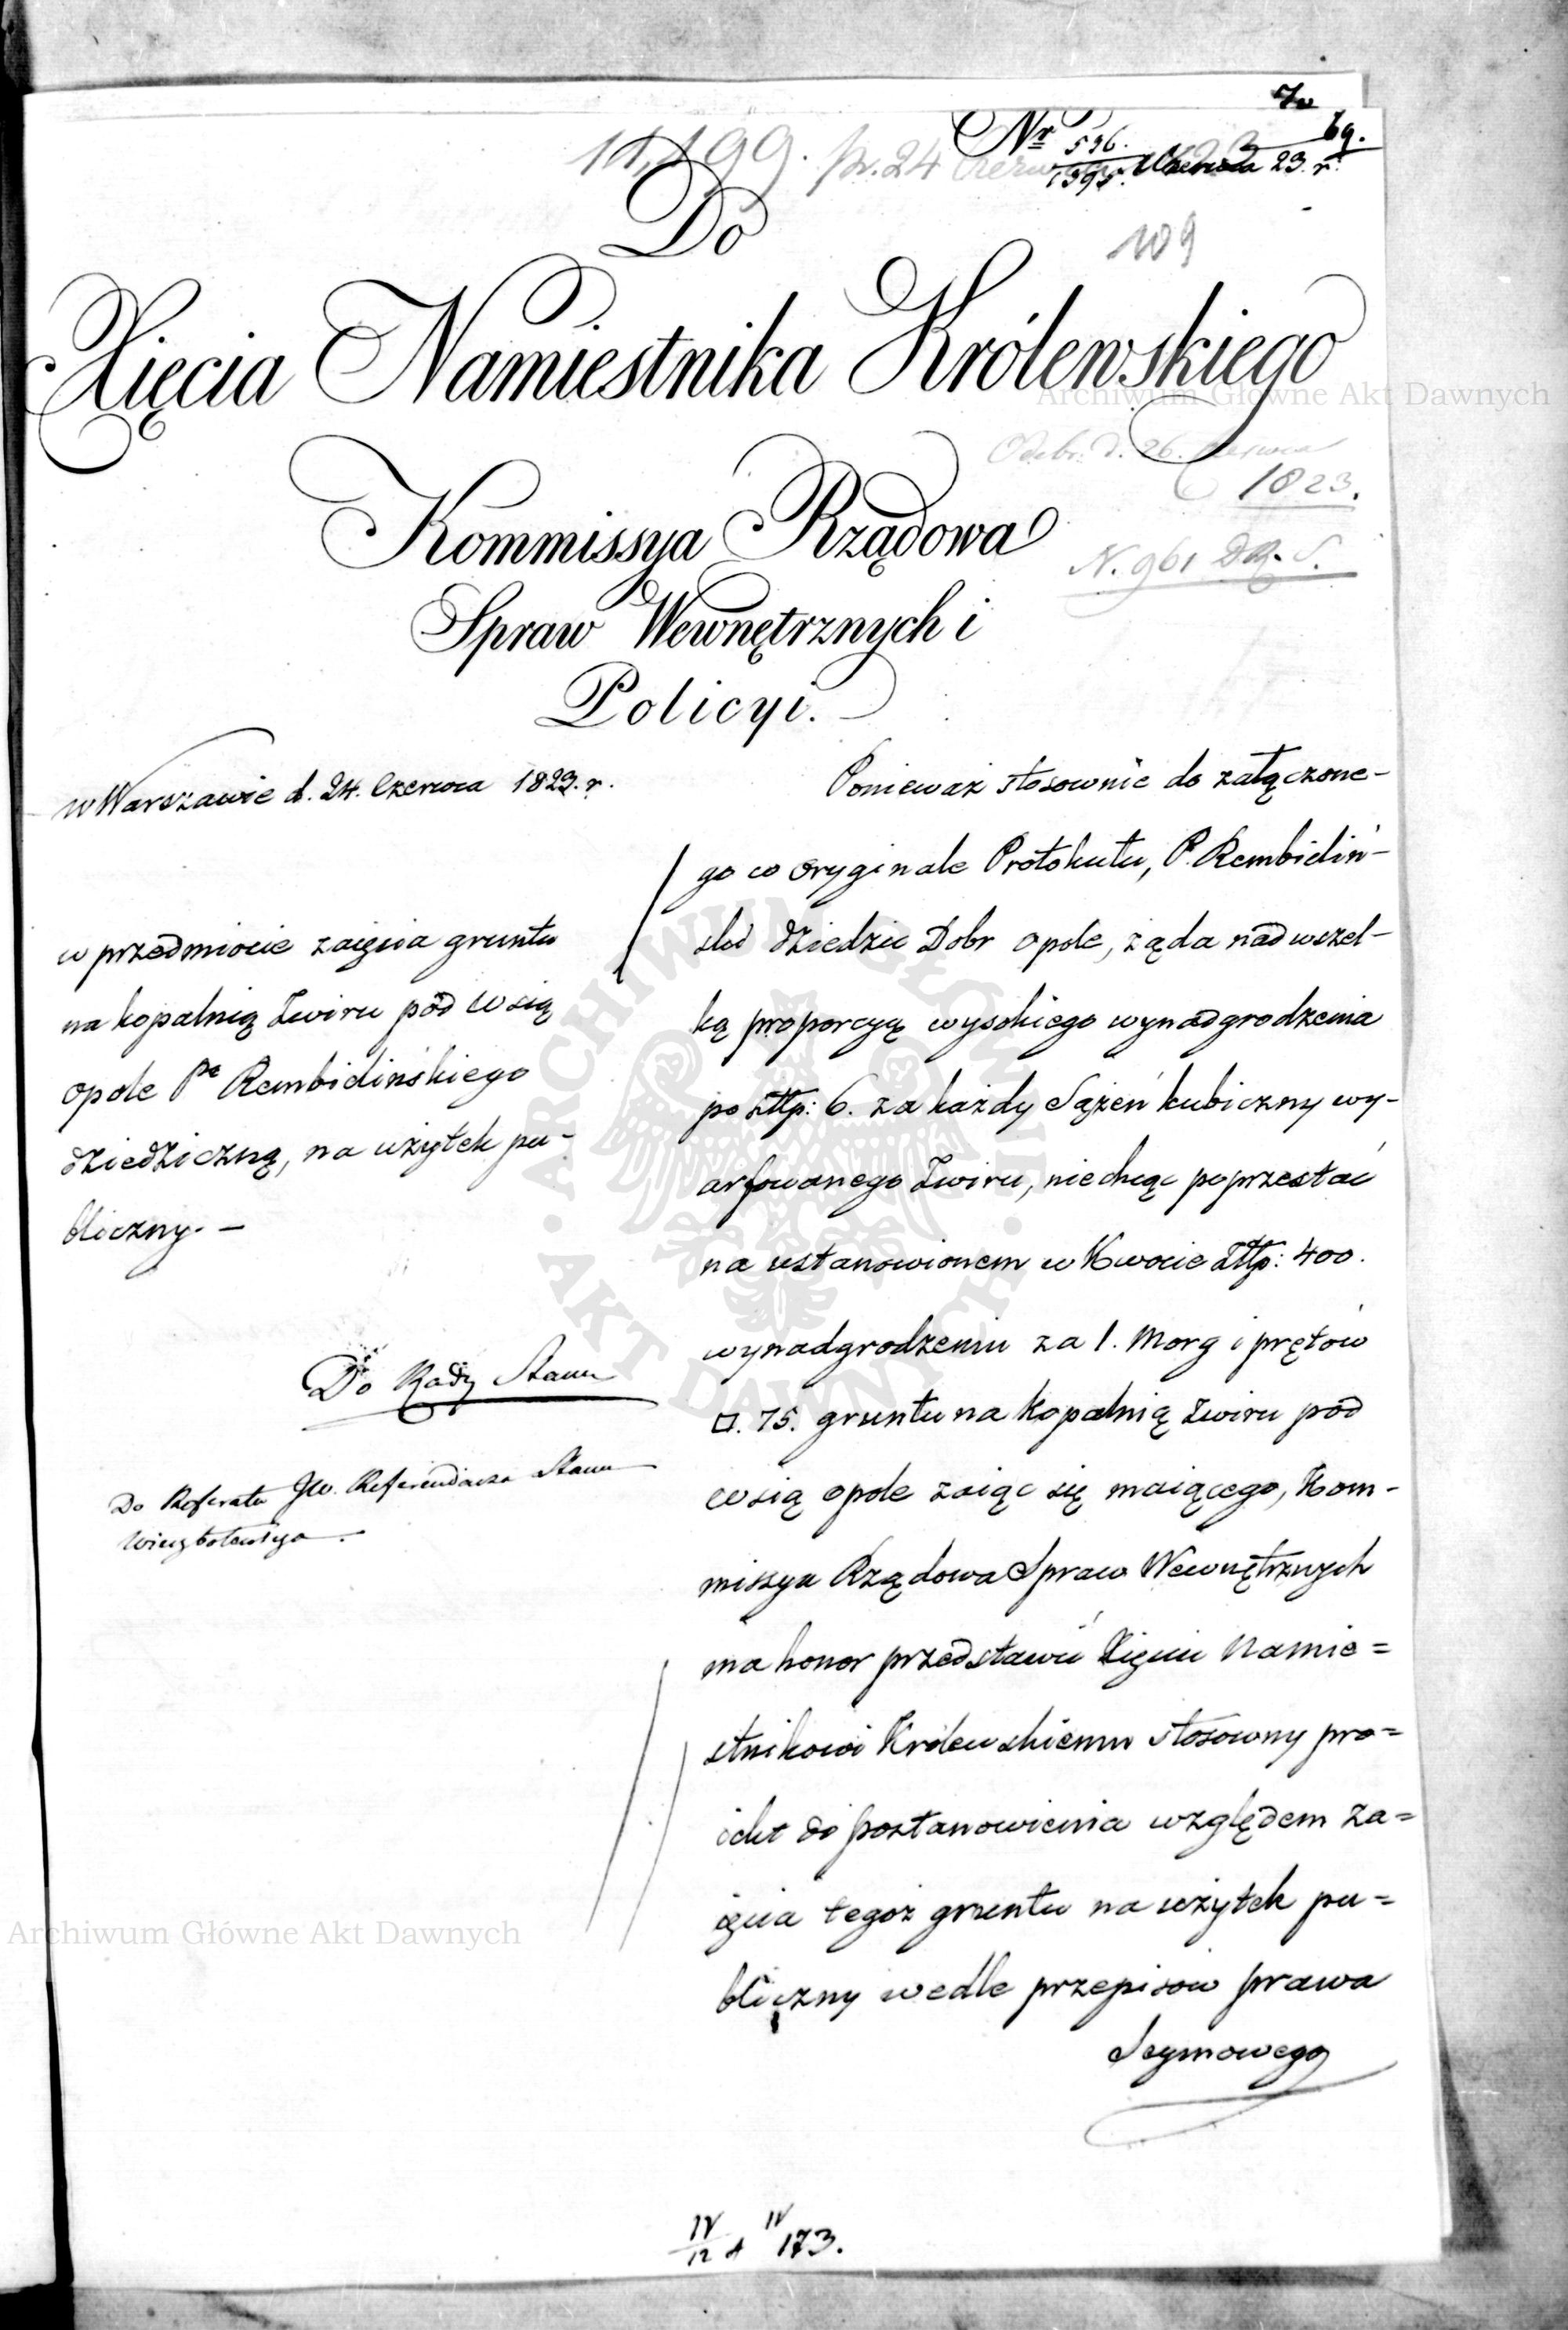 69.
Nr 536.
1395. Czerwca 23. r.
11,199. pr. 24 Czerwca
109
Do
Xięcia Namiestnika Królewskiego
Odebr. d. 26. Czerwca
1823.
N. 961 D.R.S.
Kommissya Rządowa
Spraw Wewnętrznych i
Policyi.
w Warszawie d. 24. Czerwca 1823. r.
w przedmiocie zaięcia gruntu
na kopalnią Zwiru pod wsią
opole Pa Rembidińskiego
dziedziczną, na użytek pu-
bliczny. -
Do Rady Stanu
Do Referatu JW. Referendarza Stanu
Ponieważ stosownie do załączone-
go w oryginale Protokułu, P. Rembidiń-
ski dziedzic Dobr opole, ząda nad wszel-
ką proporcyą wysokiego wynadgrodzenia
po złtp: 6. za każdy Sążeń kubiczny wy-
arfowanego Zwiru, niechcąc poprzestać
na ustanowionem w Kwocie Złtp: 400.
wynadgrodzeniu za 1. Morg i prętów
□. 75. gruntu na kopalnią Zwiru pod
wsią opole zaiąc się maiącego, Kom-
missya Rządowa Spraw Wewnętrznych
ma honor przedstawić Xięciu Namie=
stnikowi Królewskiemu stosowny pro=
iekt do postanowienia względem za=
ięcia tegoż gruntu na użytek pu=
bliczny wedle przepisów prawa
Seymowego
IV/12 A IV 173.
Archiwum Główne Akt Dawnych
ARCHIWUM GŁÓWNE · AKT DAWNYCH ·
Archiwum Główne Akt Dawnych